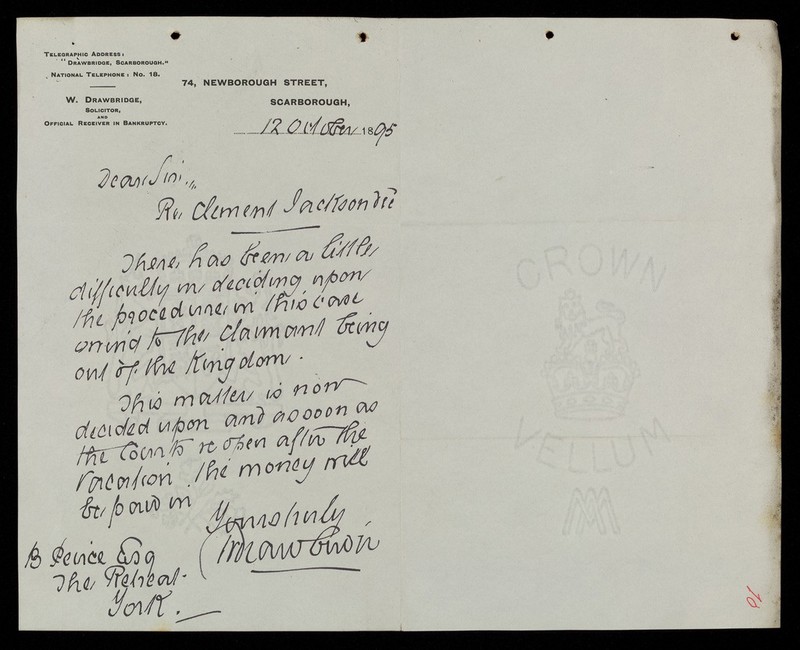 TELEGRAPHIC ADDRESS:
"DRAWBRIDGE, SCARBOROUGH."
NATIONAL TELEPHONE: NO. 18.
W. DRAWBRIDGE,
SOLICITOR,
AND
OFFICIAL RECEIVER IN BANKRUPTCY.
74, NEWBOROUGH STREET,
SCARBOROUGH,
12 October 1895
Dear Sir,
Re Clement Jackson
There has been a little
difficulty in deciding upon
the procedure in this case
owing to the claimant being
out of the Kingdom.
This matter is now
decided upon and as soon as
the Courts re open after the
Vacation the money will
be paid in
Yours truly
WDrawbridge
B Peirce Esq
The Retreat
York.
CROWN
VELLUM